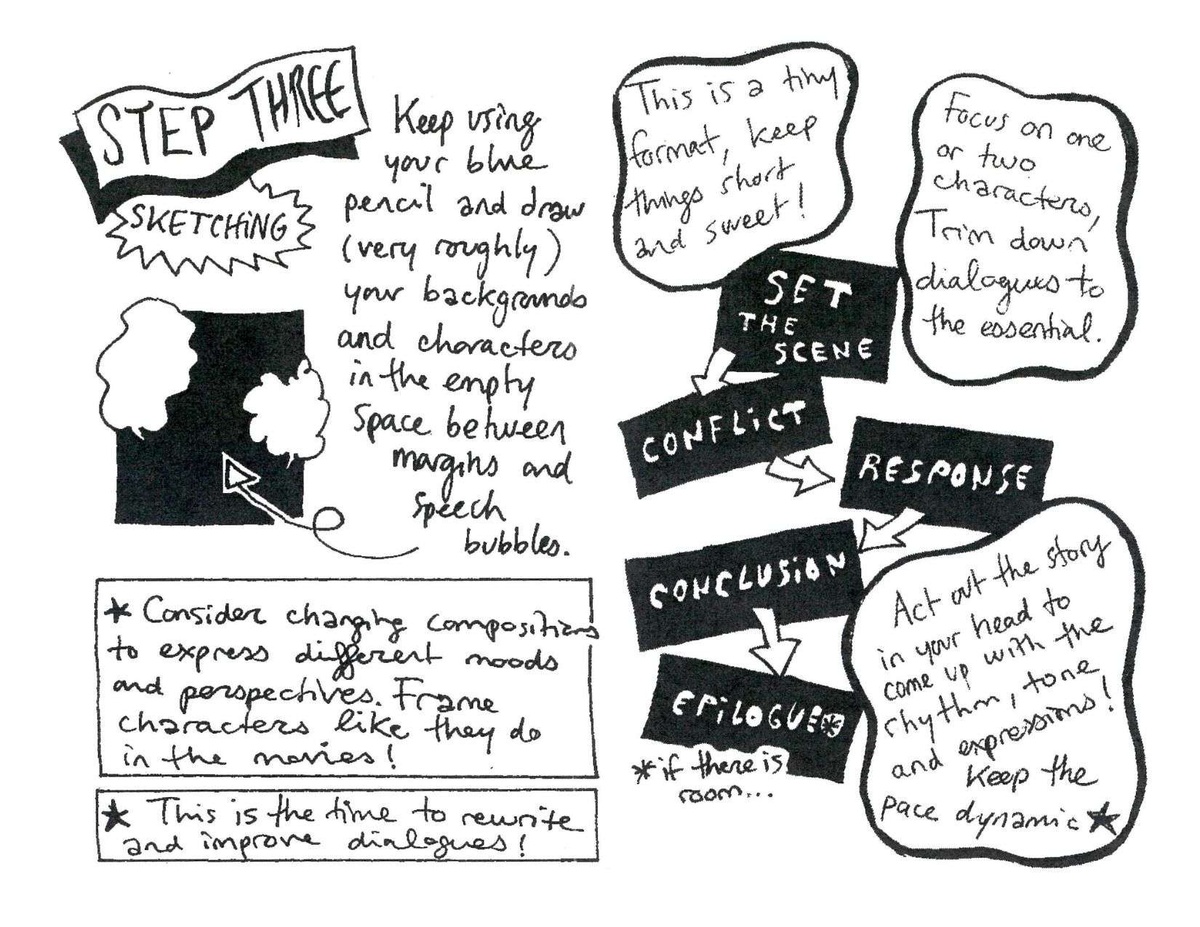 STEP THREE
SKETCHING
Keep using
your blue
pencil and draw
(very roughly)
your backgrounds
and characters
in the empty
Space between
margins and
speech
bubbles.
* Consider changing compositions
to express different moods
and perspectives. Frame
characters like they do
in the movies!
★ This is the time to rewrite
and improve dialogues!
This is a tiny
format, keep
things short
and sweet!
Focus on one
or two
characters,
Trim down
dialogues to
the essential.
SET
THE
SCENE
CONFLiCT
RESPONSE
CONCLUSION
EPiLOGUE*
*if there is
room...
Act out the story
in your head to
come up with the
rhythm, tone
and expressions!
Keep the
pace dynamic ★